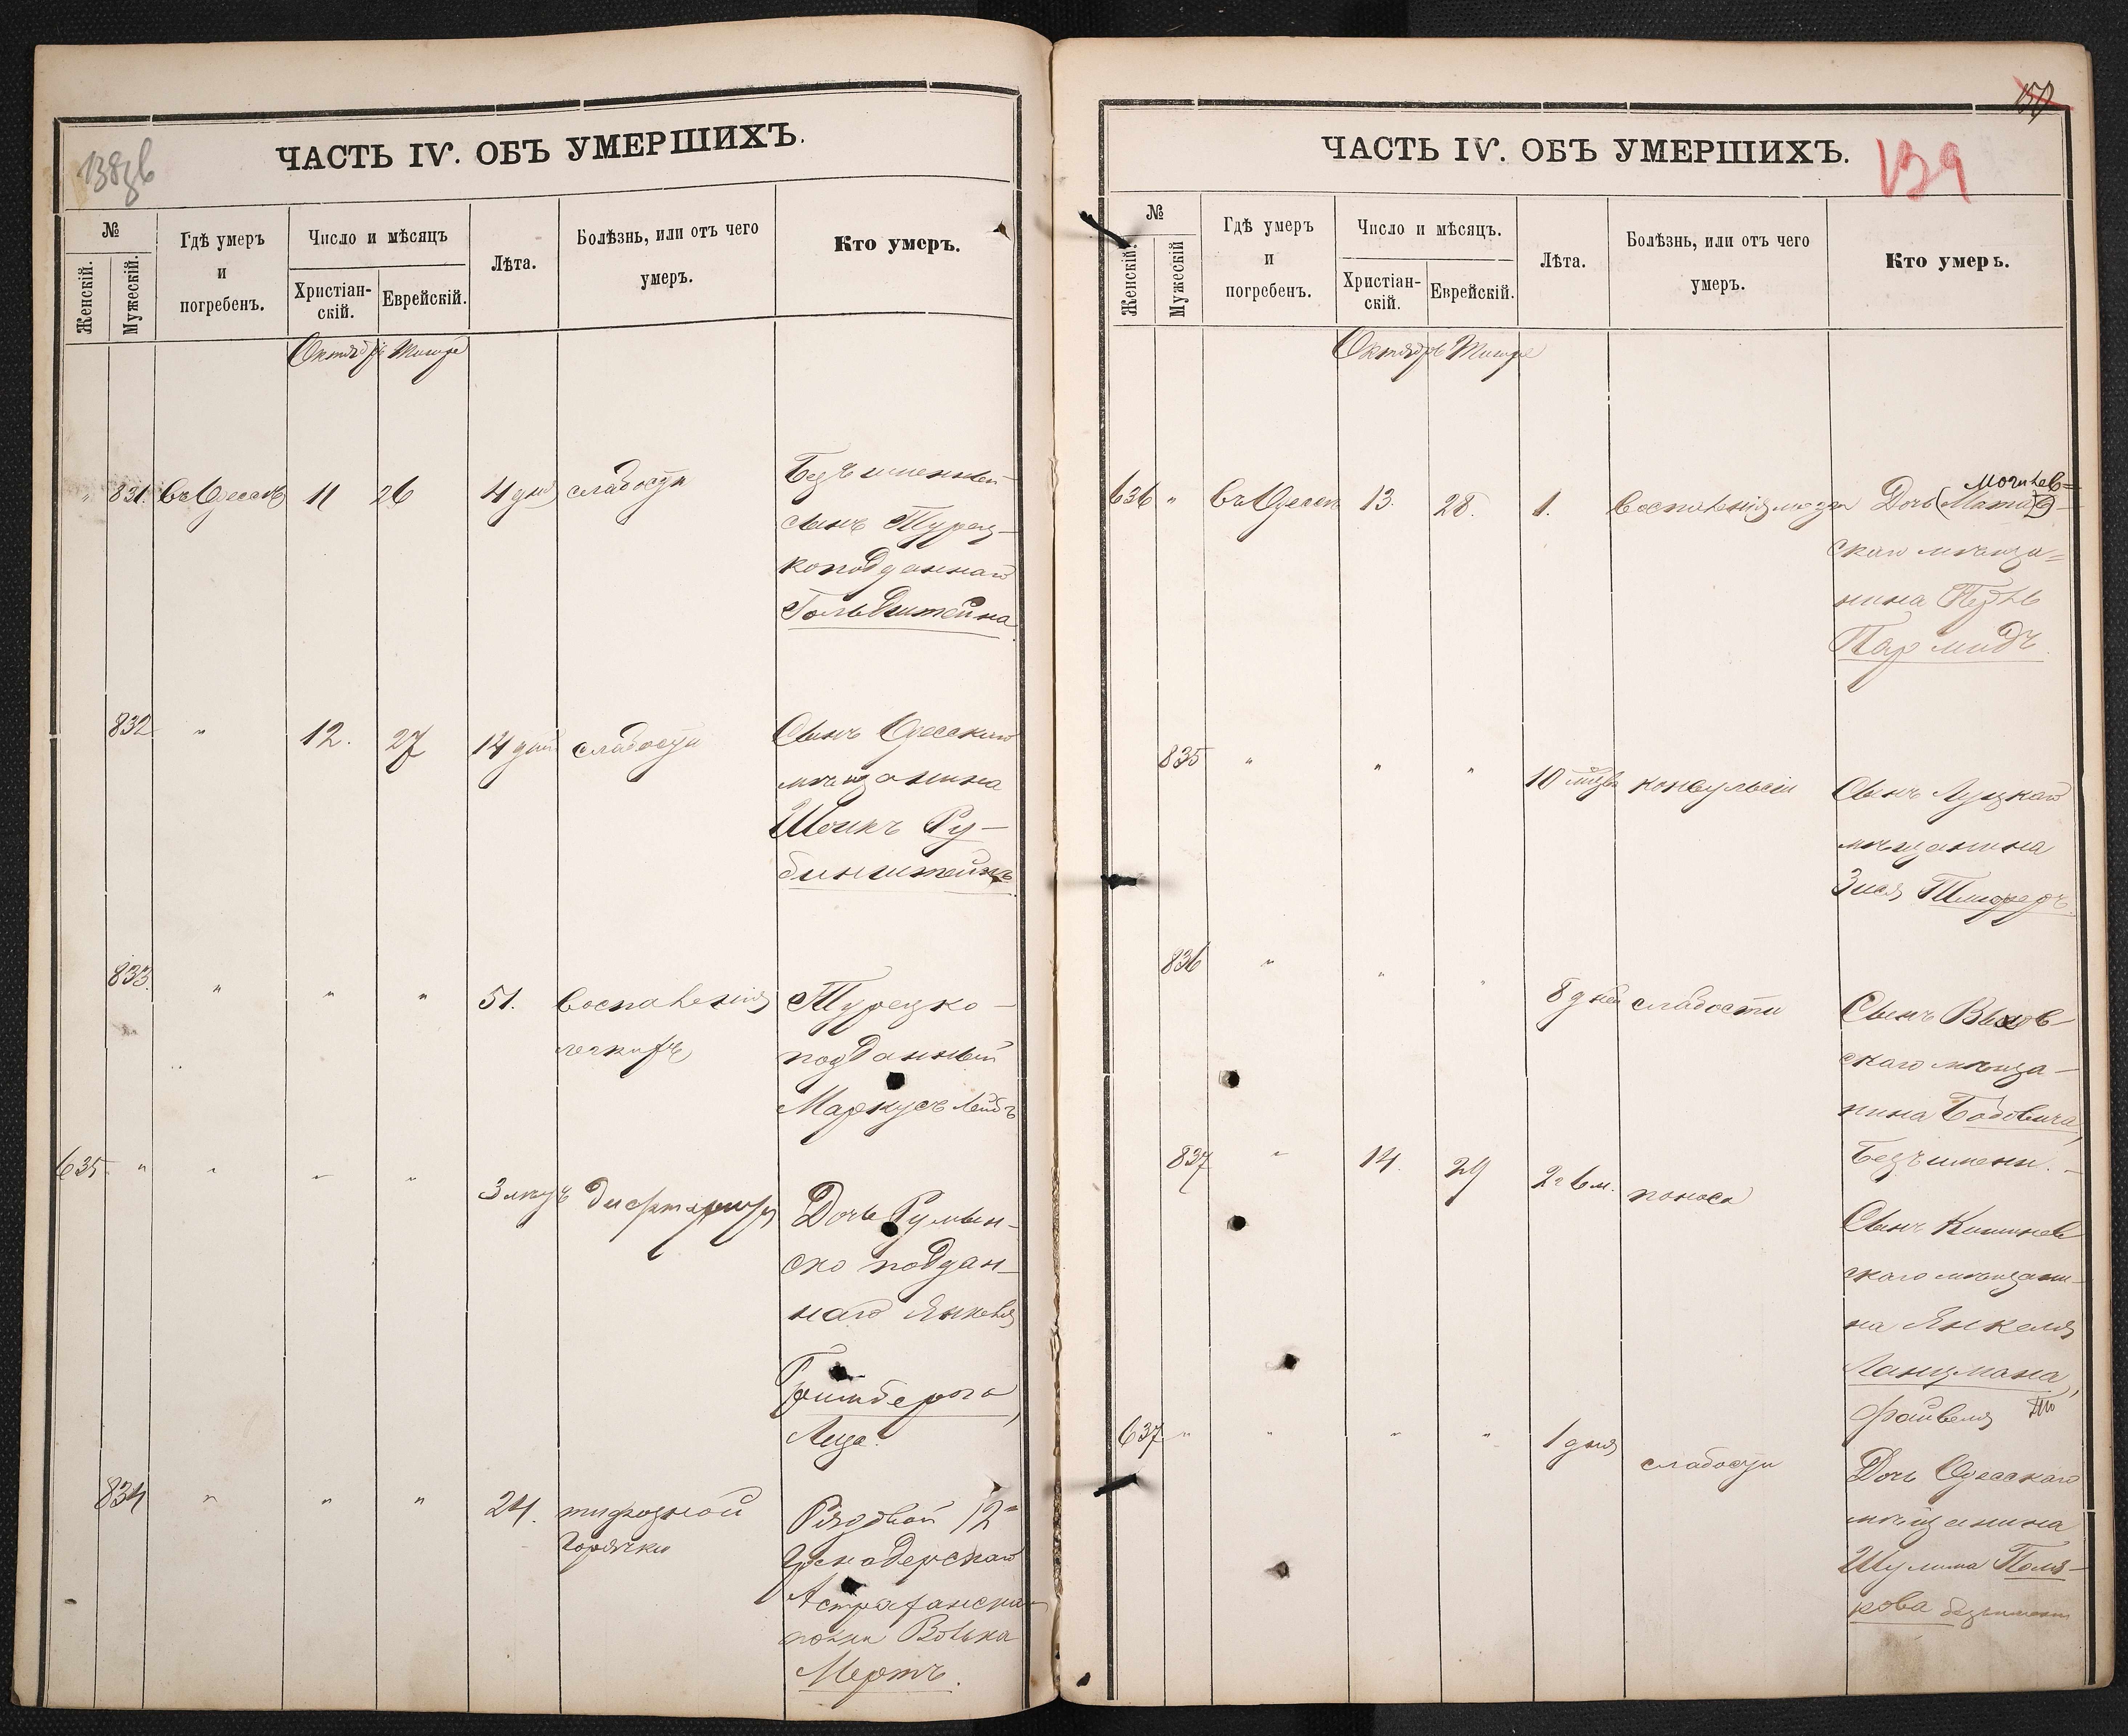 138зв
ЧАСТЬ IV. ОБЪ УМЕРШИХЪ.
№
Женскій.
Мужескій.
Гдѣ умеръ
и
погребенъ.
Число и мѣсяцъ
Христіан-
скій.
Еврейскій.
Лѣта.
Болѣзнь, или отъ чего
умеръ.
Кто умеръ.
Октябрь Тишре
" 831. въ Одессѣ 11 26 4 дня слабости
Безъименный
сынъ Турец-
коподданнаго
Гольдштейна
832 " 12. 27 14 дней слабости
Сынъ Одесскаго
мѣщанина
Шоикъ Ру-
бинштейнъ
833. " " " 51. воспаленія
легкихъ
Турецко-
подданный
Маркусъ Лейбъ
635 " " " "
дифтерита
Дочь Румын-
ско поддан-
наго Янкеля
Гринберга,
Лиза.
834 " " " 24. тифозной
горячки
Рядовой 12го
Гренадерскаго
Астраханскаго
полка Волько
Мертъ.
150
139
ЧАСТЬ IV. ОБЪ УМЕРШИХЪ.
№
Женскій.
Мужескій
Гдѣ умеръ
и
погребенъ.
Число и мѣсяцъ.
Христіан-
скій.
Еврейскій.
Лѣта.
Болѣзнь, или отъ чего
умеръ.
Кто умеръ.
Октябрь Тишре
636 " въ Одессѣ 13. 28. 1. воспаленія мозга
Могилев=
Дочь
скаго мѣща=
нина Перль
Пармидъ.
835 " " " 10 мѣсяц. конвульсіи
Сынъ Луцкаго
мѣщанина
Зися
836 " " " 8 дней слабости
Сынъ
скаго мѣща-
нина Бабовича,
Безъ имени.
837 " 14. 29 2 г 6 м. поноса
Сынъ Кишинев
скаго мѣщани-
на Янкеля
Ланцмана,
Файвель
637 " " " " 1 дня слабости
Дочь Одесскаго
мѣщанина
Шулима Поля-
кова безъимени